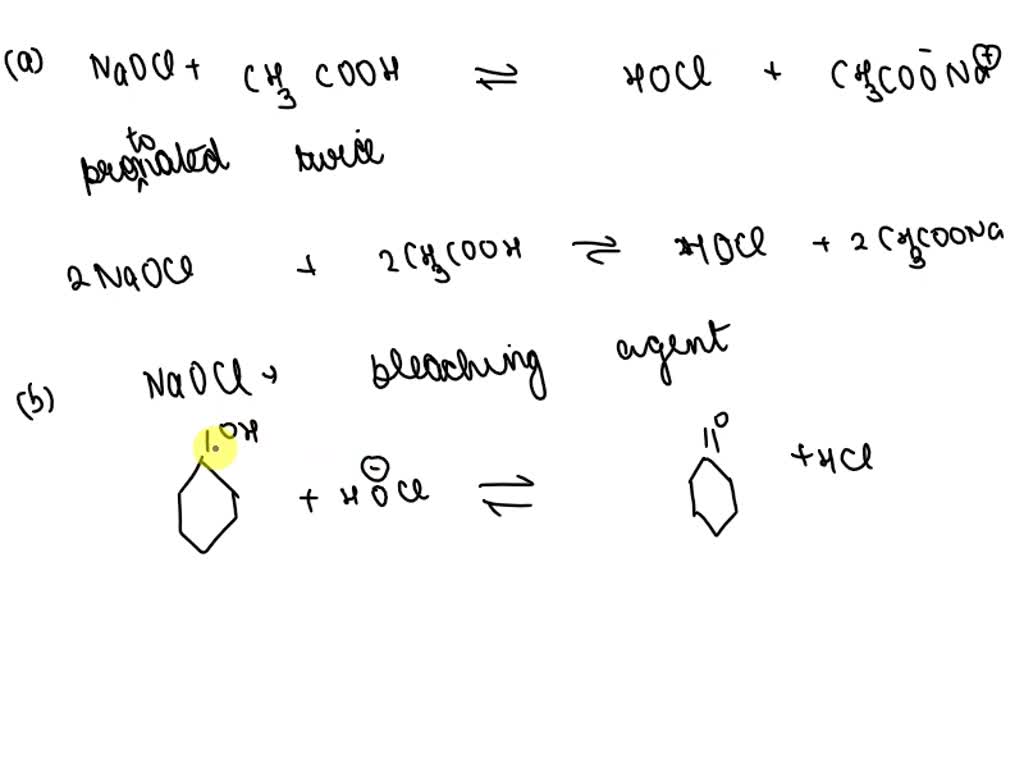 (a) NaOCl + CH3COOH ⇌ HOCl + CH3COO⁻ Na⊕
protonated twice
2NaOCl + 2CH3COOH ⇌ HOCl + 2CH3COONa
(b) NaOCl → bleaching agent
OH O
+ H O⊖ Cl ⇌ + HCl